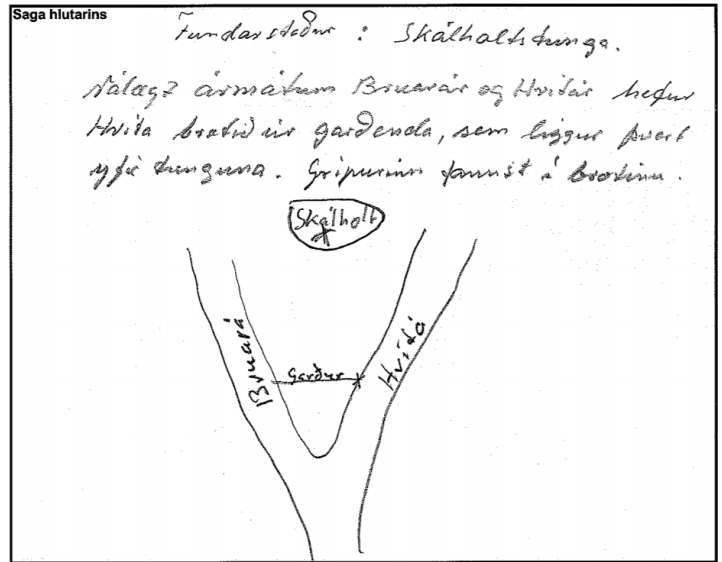 Saga hlutarins
Fundarstaður : Skálholtstunga.
Nálægt ármótum Bruarár og Hvítár hefur
Hvítá brotið úr garðenda, sem liggur þvert
yfir tunguna. Gripurinn fannst í brotinu.
Skálholt
Bruará
Garður
Hvítá